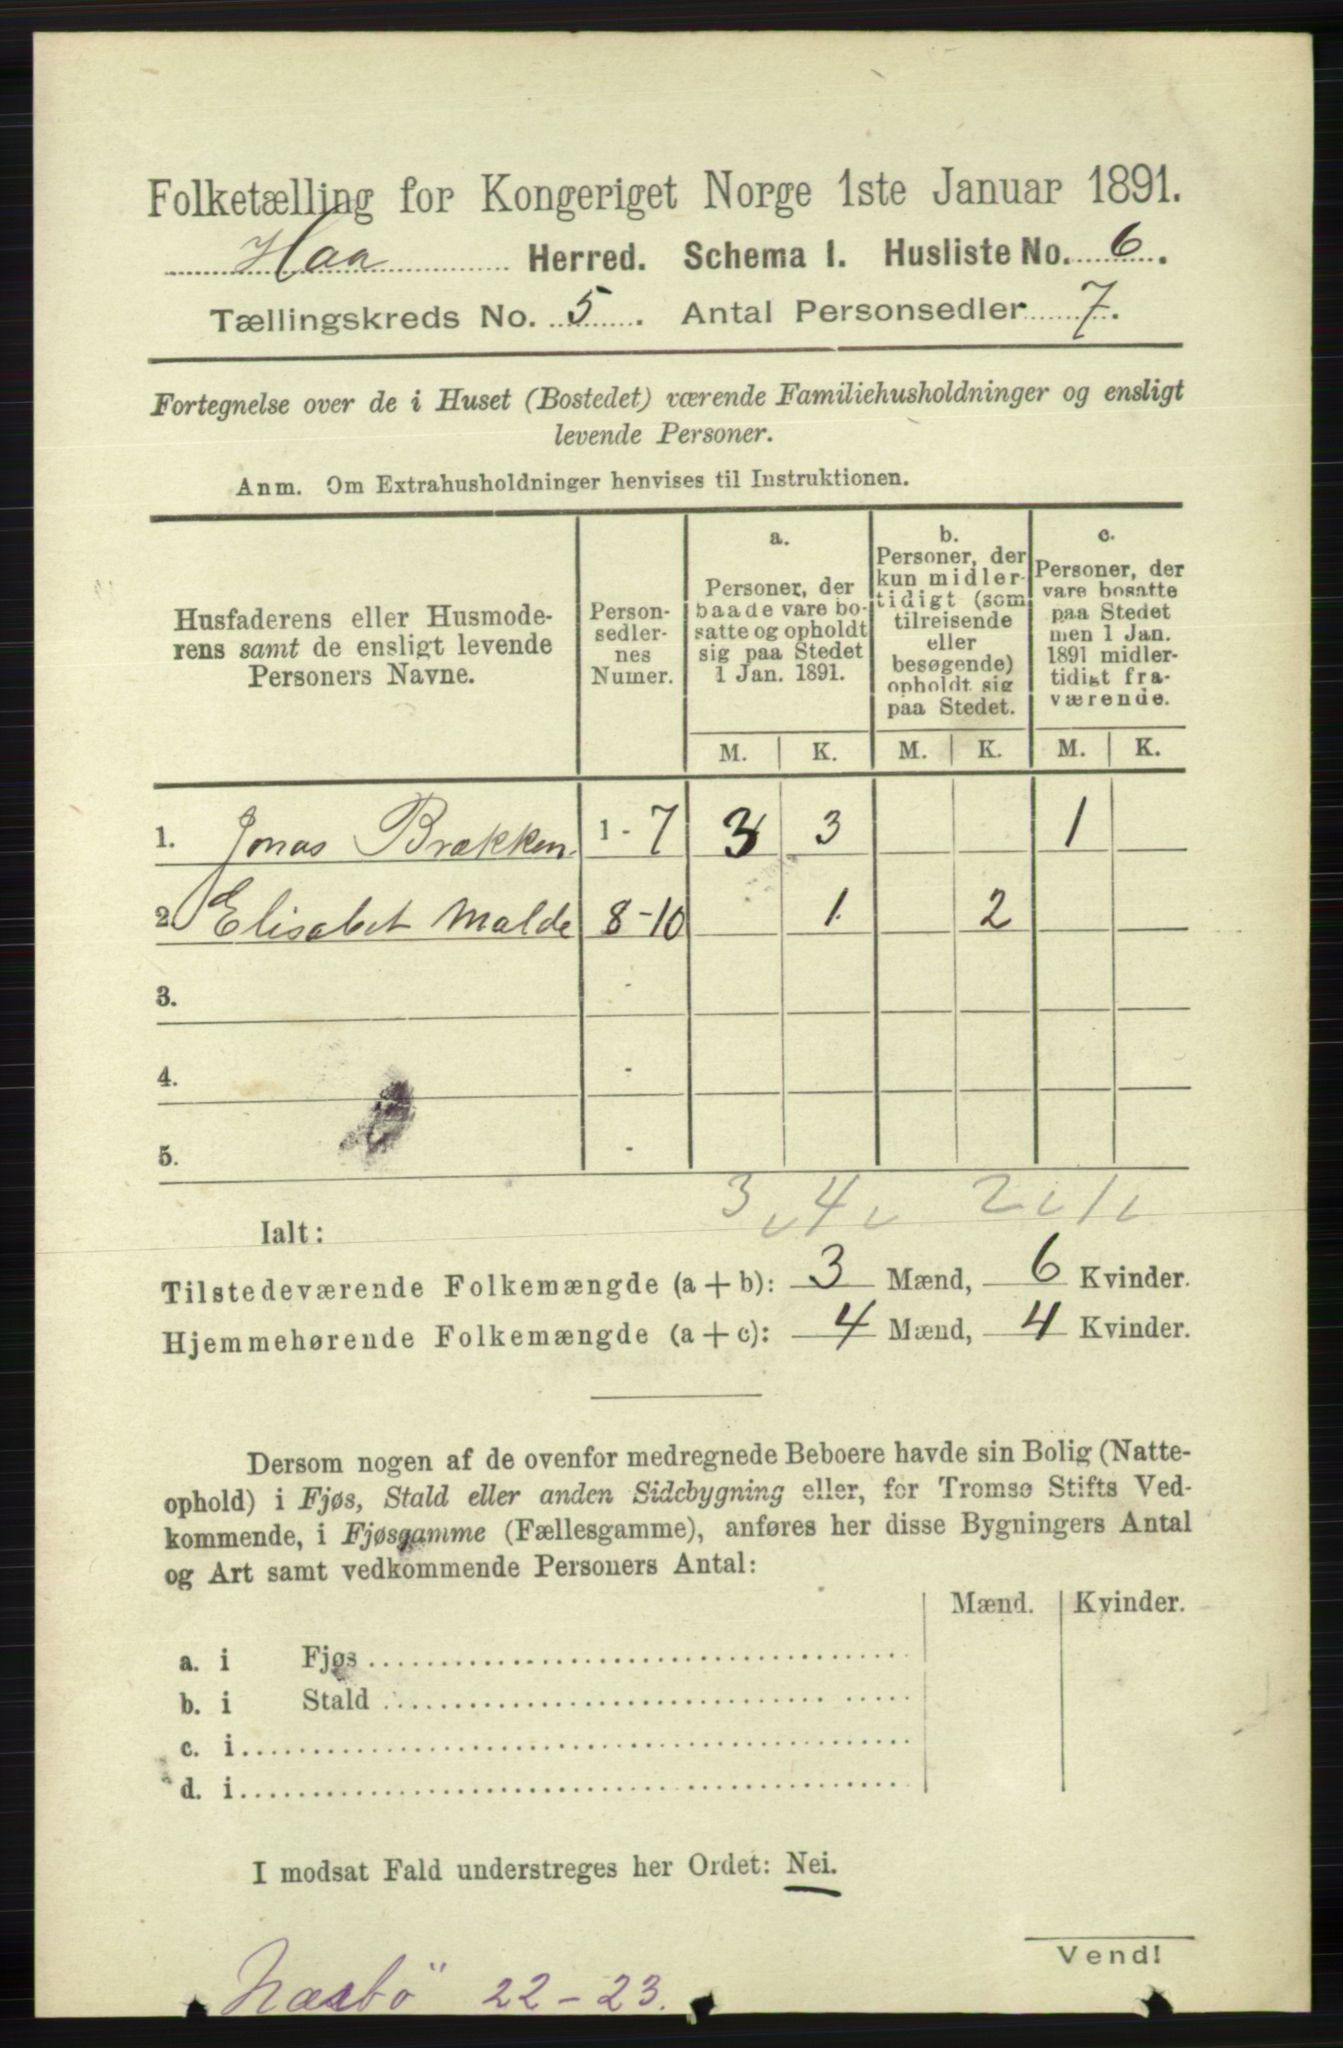 Folketælling for Kongeriget Norge 1ste Januar 1891.
Haa Herred. Schema I. Husliste No. 6.
Tællingskreds No. 5. Antal Personsedler 7.
Fortegnelse over de i Huset (Bostedet) værende Familiehusholdninger og ensligt
levende Personer.
Anm. Om Extrahusholdninger henvises til Instruktionen.
Husfaderens eller Husmode-
rens samt de ensligt levende
Personers Navne.
Person-
sedler-
nes
Numer.
a.
Personer, der
baade vare bo-
satte og opholdt
sig paa Stedet
1 Jan. 1891.
b.
Personer, der
kun midler-
tidigt (som
tilreisende
eller
besøgende)
opholdt sig
paa Stedet.
c.
Personer, der
vare bosatte
paa Stedet
men 1 Jan.
1891 midler-
tidigt fra-
værende.
M. K. M. K. M. K.
1. Jonas Brækken 1 - 7 3 3 1
2. Elisabet Malde 8 - 10 1 2
3. -
4. -
5. -
3 4 2 1
Ialt:
Tilstedeværende Folkemængde (a + b): 3 Mænd, 6 Kvinder.
Hjemmehørende Folkemængde (a + c): 4 Mænd, 4 Kvinder.
Dersom nogen af de ovenfor medregnede Beboere havde sin Bolig (Natte-
ophold) i Fjøs, Stald eller anden Sidebygning eller, for Tromsø Stifts Ved-
kommende, i Fjøsgamme (Fællesgamme), anføres her disse Bygningers Antal
og Art samt vedkommende Personers Antal:
Mænd. Kvinder.
a. i Fjøs
b. i Stald
c. i
d. i
I modsat Fald understreges her Ordet: Nei.
Vend!
Næsbö 22-23.